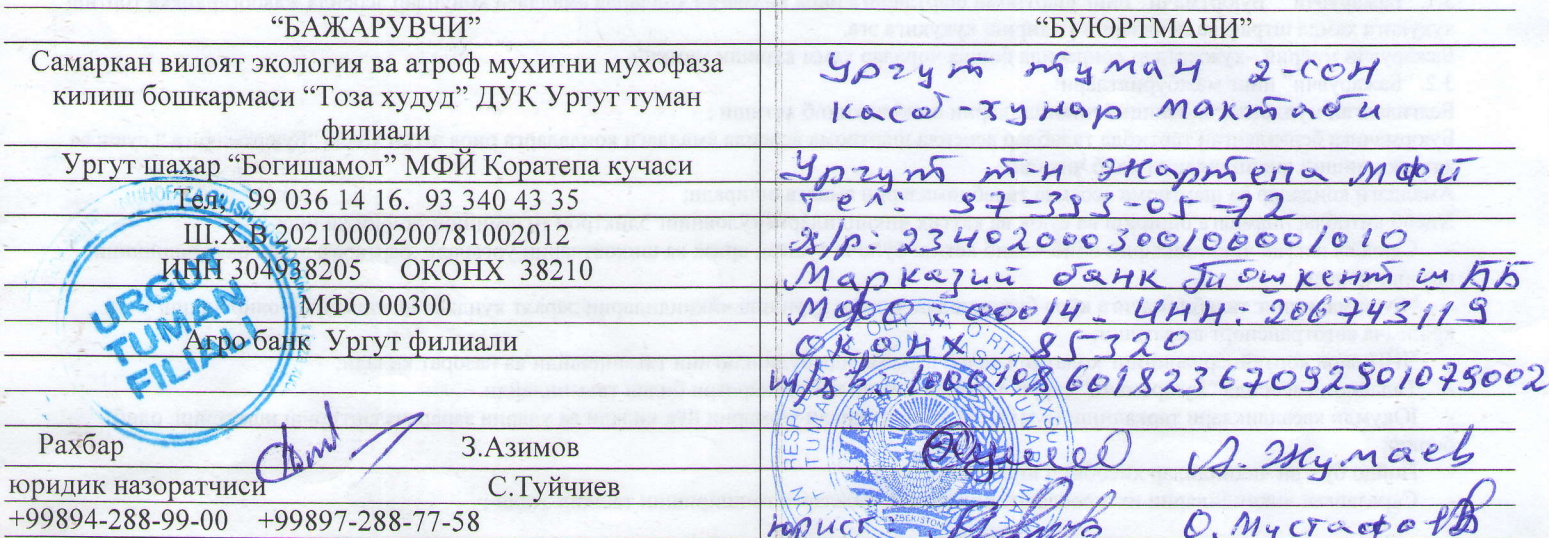 “БАЖАРУВЧИ”
Самаркан вилоят экология ва атроф мухитни мухофаза
килиш бошкармаси “Тоза худуд” ДУК Ургут туман
филиали
Ургут шахар “Богишамол” МФЙ Коратепа кучаси
Тел; 99 036 14 16. 93 340 43 35
Ш.Х.В.20210000200781002012
ИНН 304938205 ОКОНХ 38210
МФО 00300
Агро банк Ургут филиали
Рахбар З.Азимов
юридик назоратчиси С.Туйчиев
+99894-288-99-00 +99897-288-77-58
URGUT
TUMAN
FILIALI
“БУЮРТМАЧИ”
Ургут туман 2-сон
Касб-хунар мактаби
Ургут т-н Жартепа МФЙ
тел: 97-393-05-72
х/р-23402000300100001010
Марказий банк Тошкент ш ББ
МФО-00014- ИНН: 206743119
ОКОНХ 85320
ш/х в. 100010860182367092901079002
А. Жумаев
юрист О. Мустафо